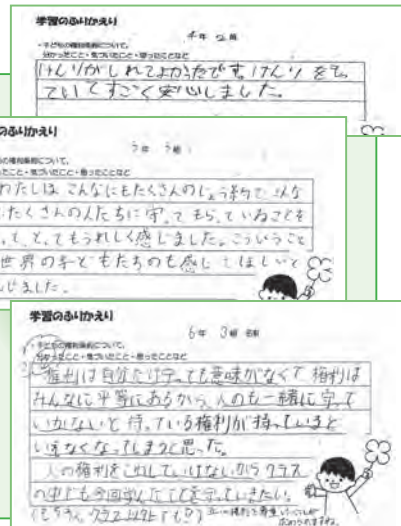 学習のふりかえり
4年 2組
・子どもの権利条約について、
分かったこと・気づいたこと・思ったことなど
けんりがしれてよかったです。けんりをも
っていてすごく安心しました。
のふりかえり
5年 3組
もの権利条約について、
たこと・気づいたこと・思ったことなど
わたしは こんなにもたくさんのじょう約で
たくさんの人たちに守ってもらっていることを
とてもうれしく感じました。こういうこと
世界の子どもたちのも感じてほしいと
じました。
学習のふりかえり
6年 3組 名前
・子どもの権利条約について、
分かったこと・気づいたこと・思ったことなど
権利は自分だけ守っても意味がなくて 権利は
みんなに平等にあるから、人のも一緒に守って
いかないと 持っている権利が持っていると
いえなくなってしまうと思った。
人の権利をこわしてはいけないから クラス
の中でも今回学んだことを守っていきたい。
(もちろん クラス以外でも!)